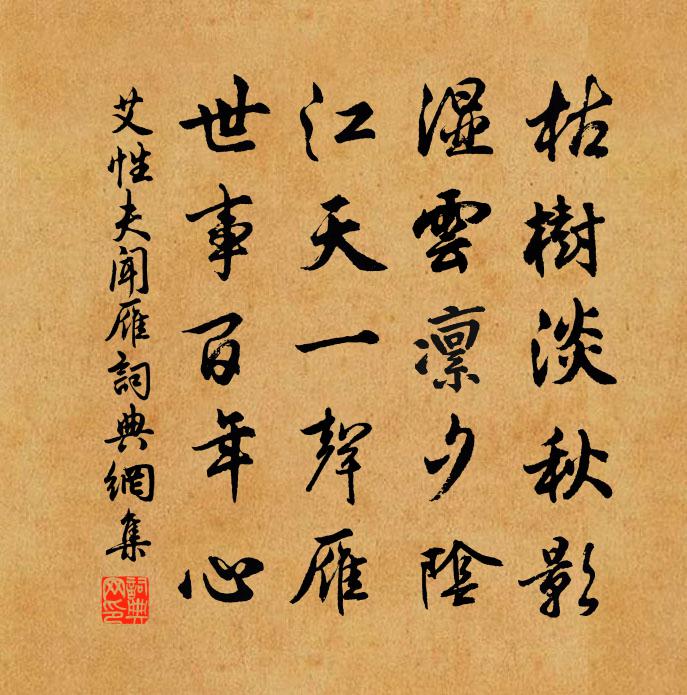 枯樹淡秋影
濕雲凛夕陰
江天一聲雁
世事百年心
艾性夫聞雁詞典網集
詞典網印